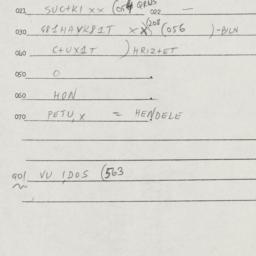 021 SUC+KI xx (054 GRUS 022 —
030 G81HAVK81T xx) (056 )-BILN
060 C+UX1T )HRIZ+ET
050 O
060 HON
070 PETU,X = HENDELE
GO! VU IDOS (563